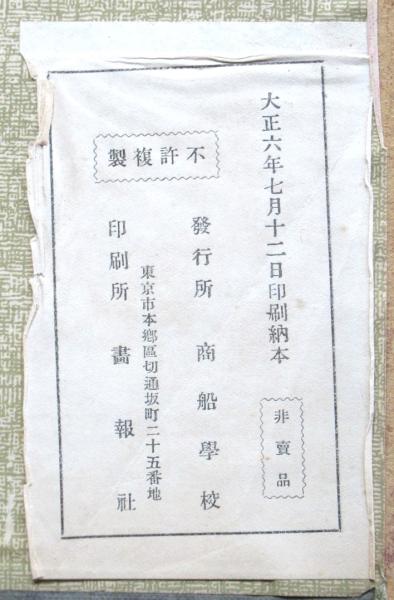 大正六年七月十二日印刷納本
非賣品
不許複製
發行所 商船學校
東京市本鄕區切通坂町二十五番地
印刷所 畫報社